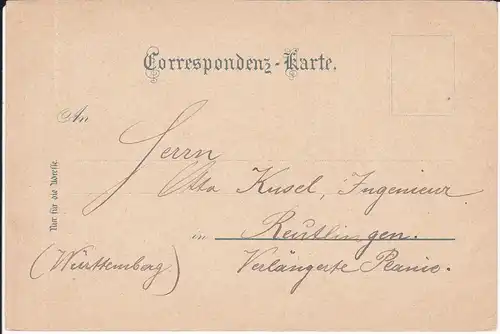 Correspondenz-Karte.
An
Herrn
Otto Kusel, Ingenieur
in Reutlingen.
(Württemberg) Verlängerte Planie.
Nur für die Adresse.